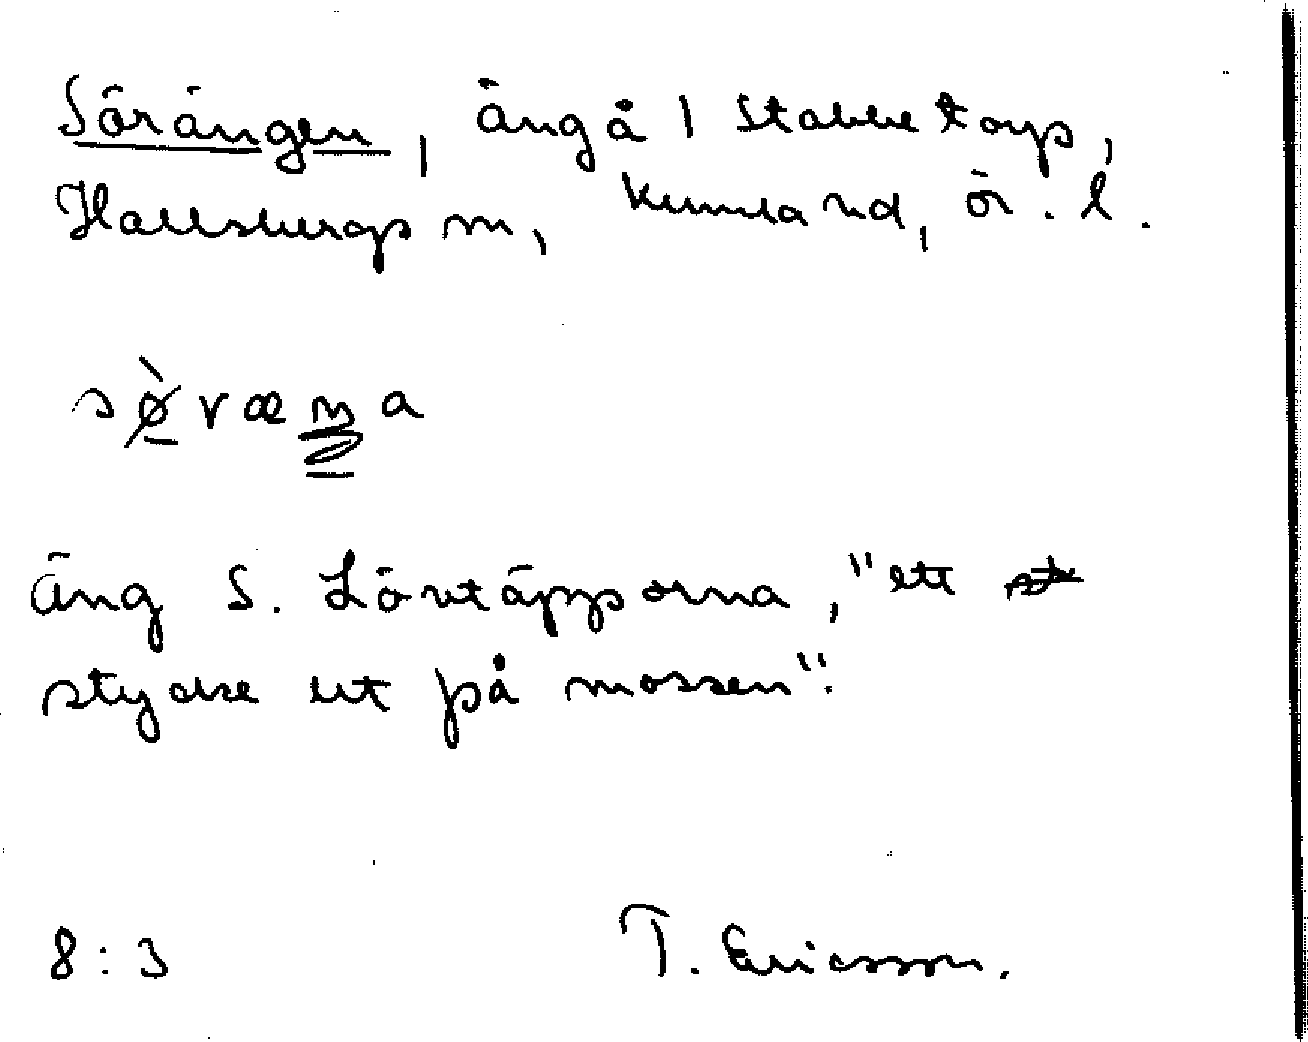 Sörängen, äng å 1 Stabbetorp,
Hallsbergs sn, Kumla hd, ör. l.
sø̀ræŋa
äng S. Lövtäpporna, "ett
stycke ut på mossen".
8:3 T. Ericsson.